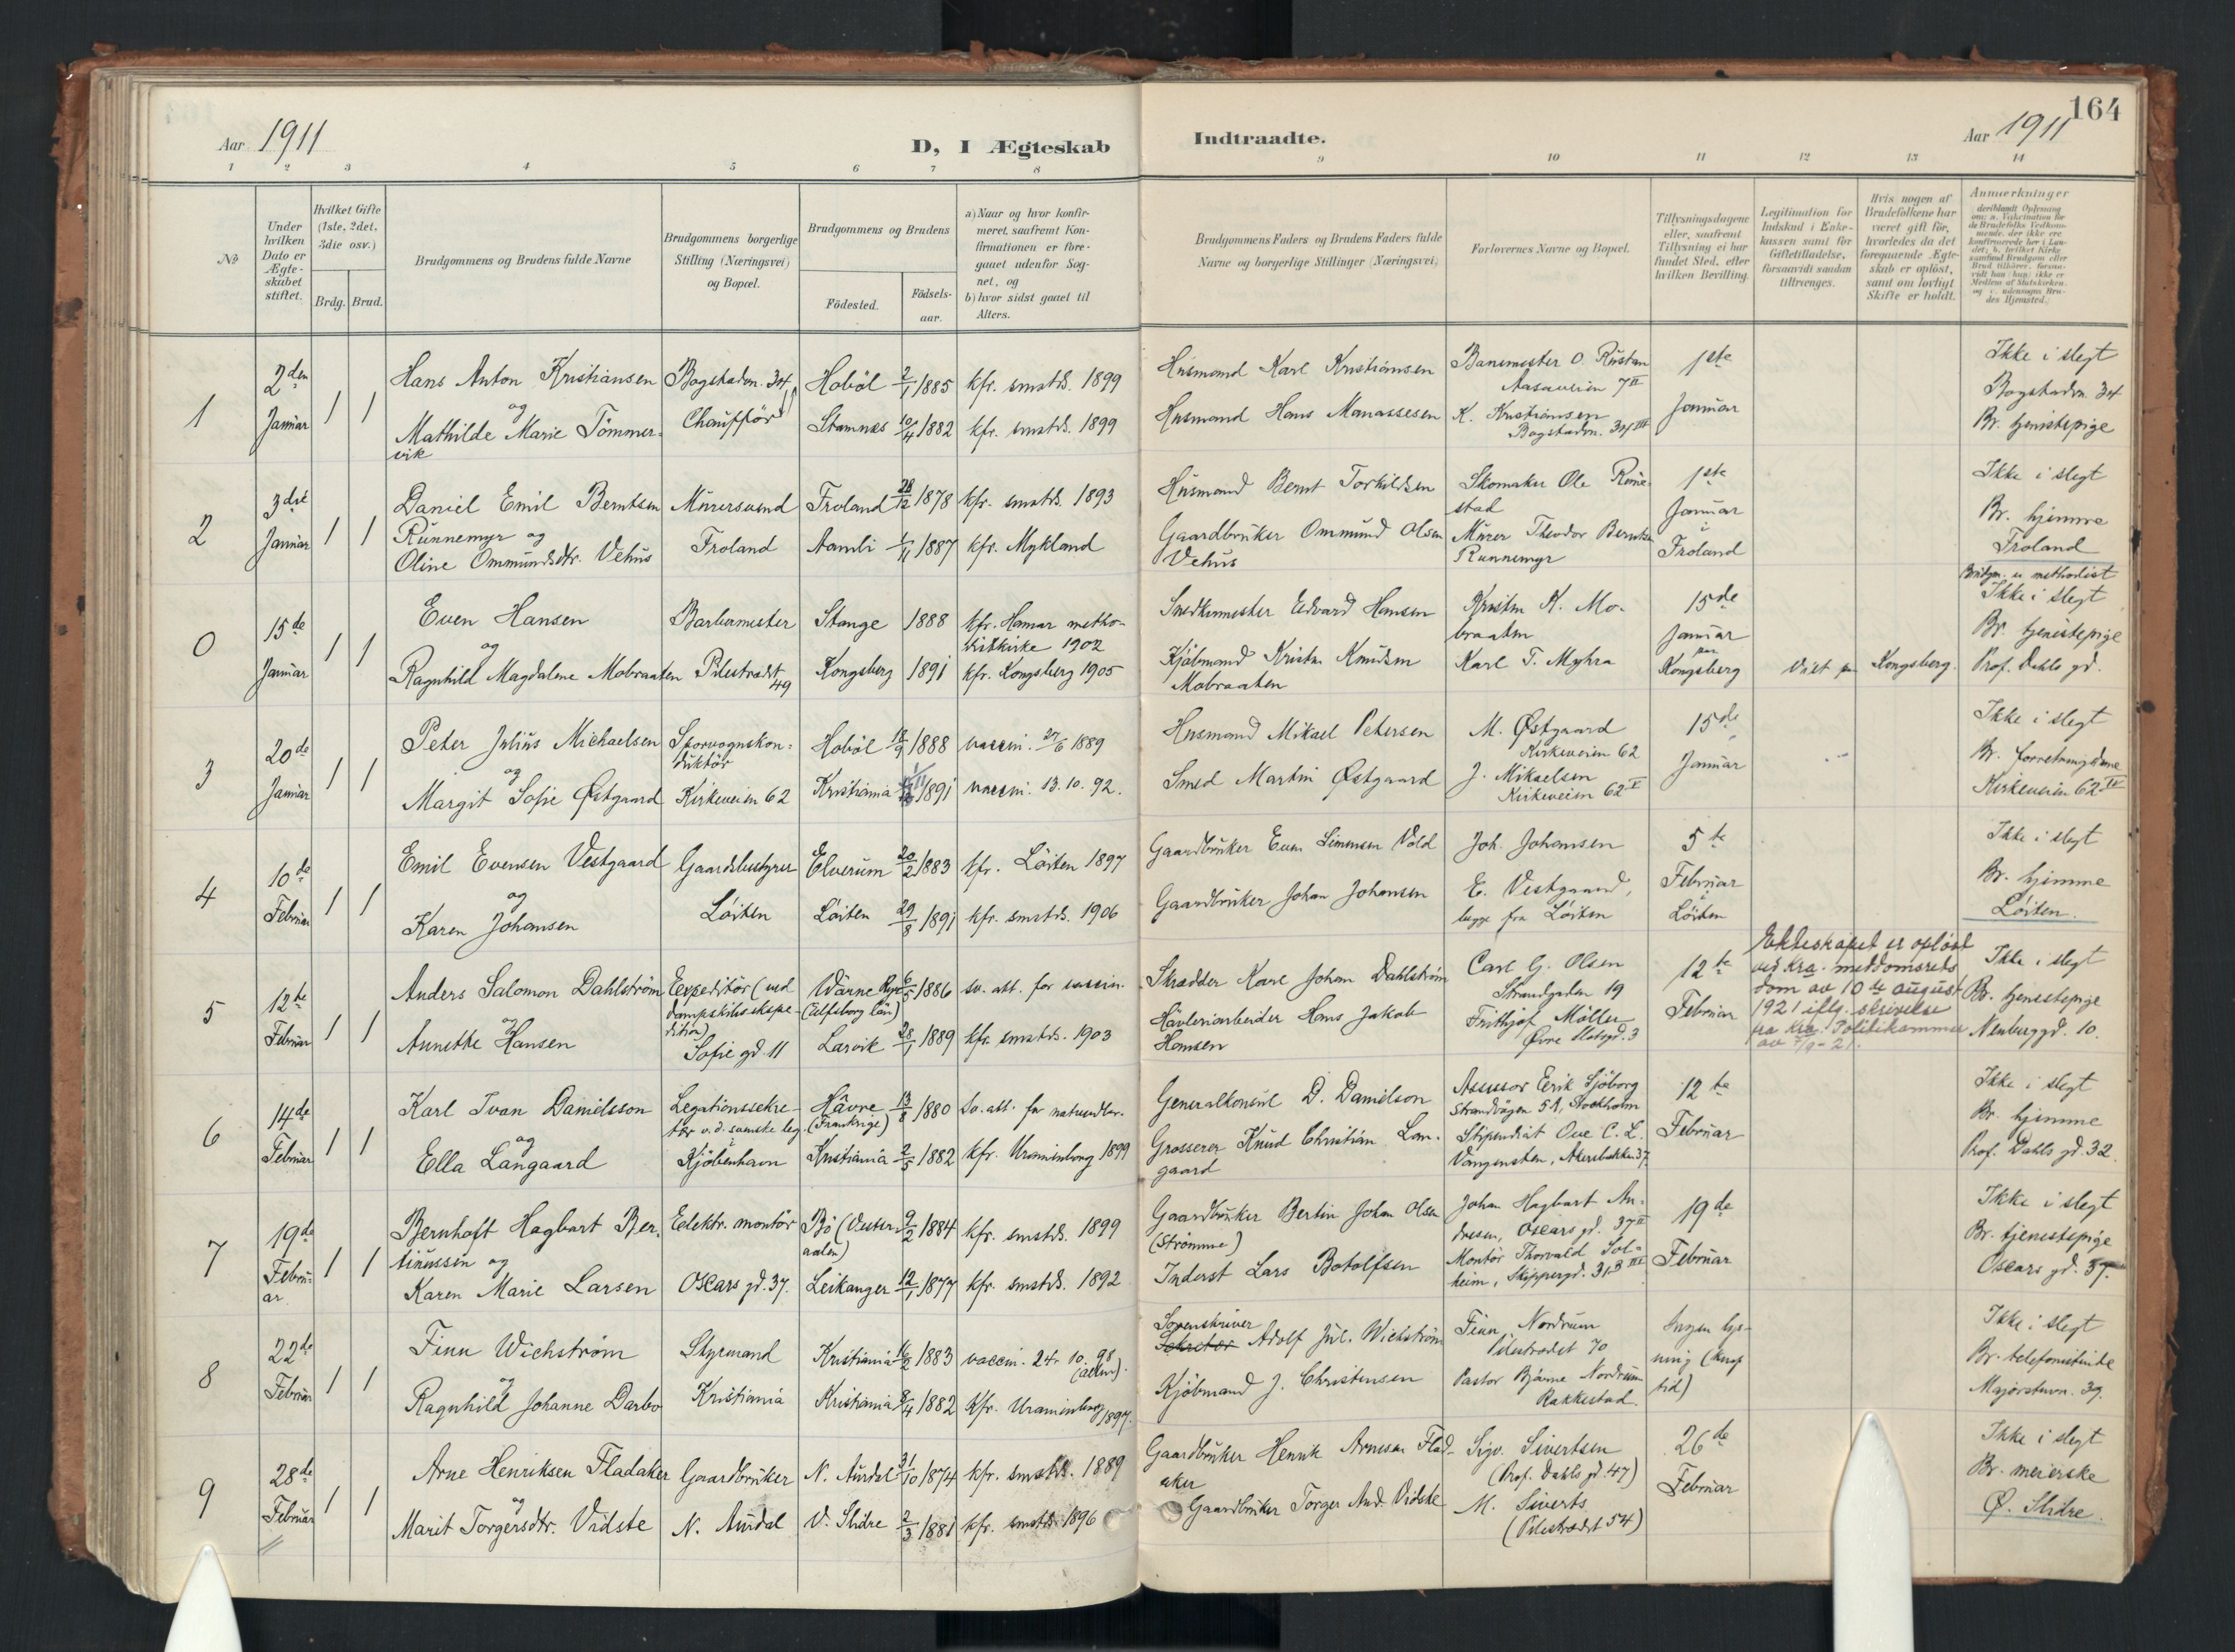 164
Aar 1911
D, I Ægteskab
Indtraadte.
Aar 1911
1 2 3 4 5 6 7 8 9 10 11 12 13 14
No
Under hvilken Dato er Ægteskabet stiftet.
Hvilket Gifte (1ste, 2det, 3die osv.)
Brdg. Brud.
Brudgommens og Brudens fulde Navne
Brudgommens borgerlige Stilling (Næringsvei) og Bopæl.
Brudgommens og Brudens
Fødested.
Fødselsaar.
a) Naar og hvor konfirmeret, saafremt Konfirmationen er foregaaet udenfor Sognet, og
b) hvor sidst gaaet til Alters.
Brudgommens Faders og Brudens Faders fulde Navne og borgerlige Stillinger (Næringsvei)
Forlovernes Navne og Bopæl.
Tillysningsdagene eller, saafremt Tillysning ei har fundet Sted, efter hvilken Bevilling.
Legitimation for Indskud i Enkekassen samt for Giftetilladelse, forsaavidt saadan tiltrænges.
Hvis nogen af Brudefolkene har været gift før, hvorledes da det foregaaende Ægteskab er opløst, samt om lovligt Skifte er holdt.
Anmerkninger
1
2den Januar
1 1
Hans Anton Kristiansen
og
Mathilde Marie Tömmervik
Bogstadvn. 34
Chauffør
Hobøl 2/1 1885 kfr. smstds. 1899
Stamnes 10/4 1882 kfr. smstds. 1899
Husmand Karl Kristiansen
Husmand Hans Manassesen
Banemester O. Rustan
Aasaveien 7 II
K. Kristiansen
Bogstadvn. 34 III
1ste Januar
Ikke i slegt
Bogstadvn. 34
Br. tjenestepige
2
3die Januar
1 1
Daniel Emil Berntsen
Runnemyr og
Oline Ommundsdtr. Vehus
Murersvend
Froland
Froland 28/12 1878 kfr. smstds. 1893
Aamli 1887 kfr. Mykland
Husmand Bernt Torkildsen
Gaardbruker Ommund Olsen
Vehus
Skomaker Ole Rønestad
Murer Theodor Berntsen
Runnemyr
1ste
Januar
i
Froland
Ikke i slegt
Br. hjemme
Froland
0
15de Januar
1 1
Even Hansen
og
Ragnhild Magdalene Mobraaten
Barbermester
Pilestrædet 49
Stange 1888 kfr. Hamar methodistkirke 1902
Kongsberg 1891 kfr. Kongsberg 1905
Snedkermester Edvard Hansen
Kjøbmand Kristen Knudsen
Mobraaten
Kristen K. Mobraaten
Karl T. Myhra
15de
Januar
paa
Kongsberg
Viet paa Kongsberg.
Brudgm. er methodist
Ikke i slegt
Br. tjenestepige
Prof. Dahls gd.
3
20de Januar
1 1
Peter Julius Michaelsen
og
Margit Sofie Østgaard
Sporvognskonduktör
Kirkeveien 62
Hobøl 18/9 1888 vaccin. 27/6 1889
Kristiania 1891 vaccin. 13. 10. 92.
Husmand Mikael Petersen
Smed Martin Østgaard
M. Østgaard
Kirkeveien 62
J. Mikaelsen
Kirkeveien 62 II
15de
Januar
Ikke i slegt
Br. forretningsdame
Kirkeveien 62 IV
4
10de Februar
1 1
Emil Evensen Vestgaard
og
Karen Johansen
Gaardsbestyrer
Löiten
Elverum 20/2 1883 kfr. Löiten 1897
Löiten 29/8 1891 kfr. smstds. 1906
Gaardbruker Even Simensen Vold
Gaardbruker Johan Johansen
Joh. Johansen
E. Vestgaard,
begge fra Löiten
5te
Februar
i
Löiten
Ikke i slegt
Br. hjemme
Löiten.
5
12te Februar
1 1
Anders Salomon Dahlström
og
Annette Hansen
Expeditör (ved dampskibsekspedition)
Sofie gd. 11
Wärne Ryr 6/5 1886 sv. att. for vaccin.
(Elfsborg län)
Larvik 28/1 1889 kfr. smstds. 1903
Skrædder Karl Johan Dahlström
Hövleriarbeider Hans Jakob
Hansen
Carl G. Olsen
Strandgaden 19
Frithjof Möller
Øvre Slotsgd. 3
12te
Februar
Ekteskapet er opløst ved Kra. meddomsrets dom av 10de august 1921 iflg. skrivelse fra Kra. Politikammer av 7/9-21.
Ikke i slegt
Br. tjenestepige
Neuberggd. 10.
6
14de Februar
1 1
Karl Ivan Danielsson
og
Ella Langaard
Legationssekretær v. d. svenske leg. i
Kjöbenhavn
Hâvre 13/8 1880 sv. att. for naturl.
(Frankrige)
Kristiania 2/5 1882 kfr. Uranienborg 1899
Generalkonsul D. Danielson
Grosserer Knud Christian Langaard
Assessor Eerik Sjöborg
Strandvägen 51, Stockholm
Stipendiat Ove C. L.
Vangensten, Akersbakken 37
12te
Februar
Ikke i slegt
Br. hjemme
Prof. Dahls gd. 32
7
19de Februar
1 1
Bernhoft Hagbart Bertinussen og
Karen Marie Larsen
Elektr. montör
Oscars gd. 37.
Bö (Vesteraalen) 9/2 1884 kfr. smstds. 1899
Leikanger 12/1 1877 kfr. smstds. 1892
Gaardbruker Bertin Johan Olsen
(Strömme)
Inderst Lars Botolfsen
Johan Hagbart Andresen, Oscars gd. 37 II
Montör Thorvald Solheim, Skippergd. 31 B III
19de
Februar
Ikke i slegt
Br. tjenestepige
Oscars gd. 37.
8
22de Februar
1 1
Finn Wichström
og
Ragnhild Johanne Darbo
Styrmand
Kristiania
Kristiania 16/2 1883 vaccin. 24. 10. 98
Kristiania 8/4 1882 kfr. Uranienborg 1897.
Sorenskriver
Sekretær Adolf Jul. Wichström
Kjöbmand J. Christensen
Finn Nordrum
Pilestrædet 70
Pastor Bjarne Nordrum
Rakkestad.
Ingen lysning (knap tid)
Ikke i slegt
Br. telefonistinde
Majorstuvn. 39.
9
28de Februar
1 1
Arne Henriksen Fladaker
og
Marit Torgersdtr. Vidste
Gaardbruker
N. Aurdal
N. Aurdal 31/10 1874 kfr. smstds. 1889
V. Slidre 2/3 1881 kfr. smstds. 1896
Gaardbruker Henrik Arnesen Fladaker
Gaardbruker Torger And. Vidste
Sigv. Sivertsen
(Prof. Dahls gd. 47)
M. Siverts
(Pilestrædet 54)
26de
Februar
Ikke i slegt
Br. meierske
Ø. Slidre.